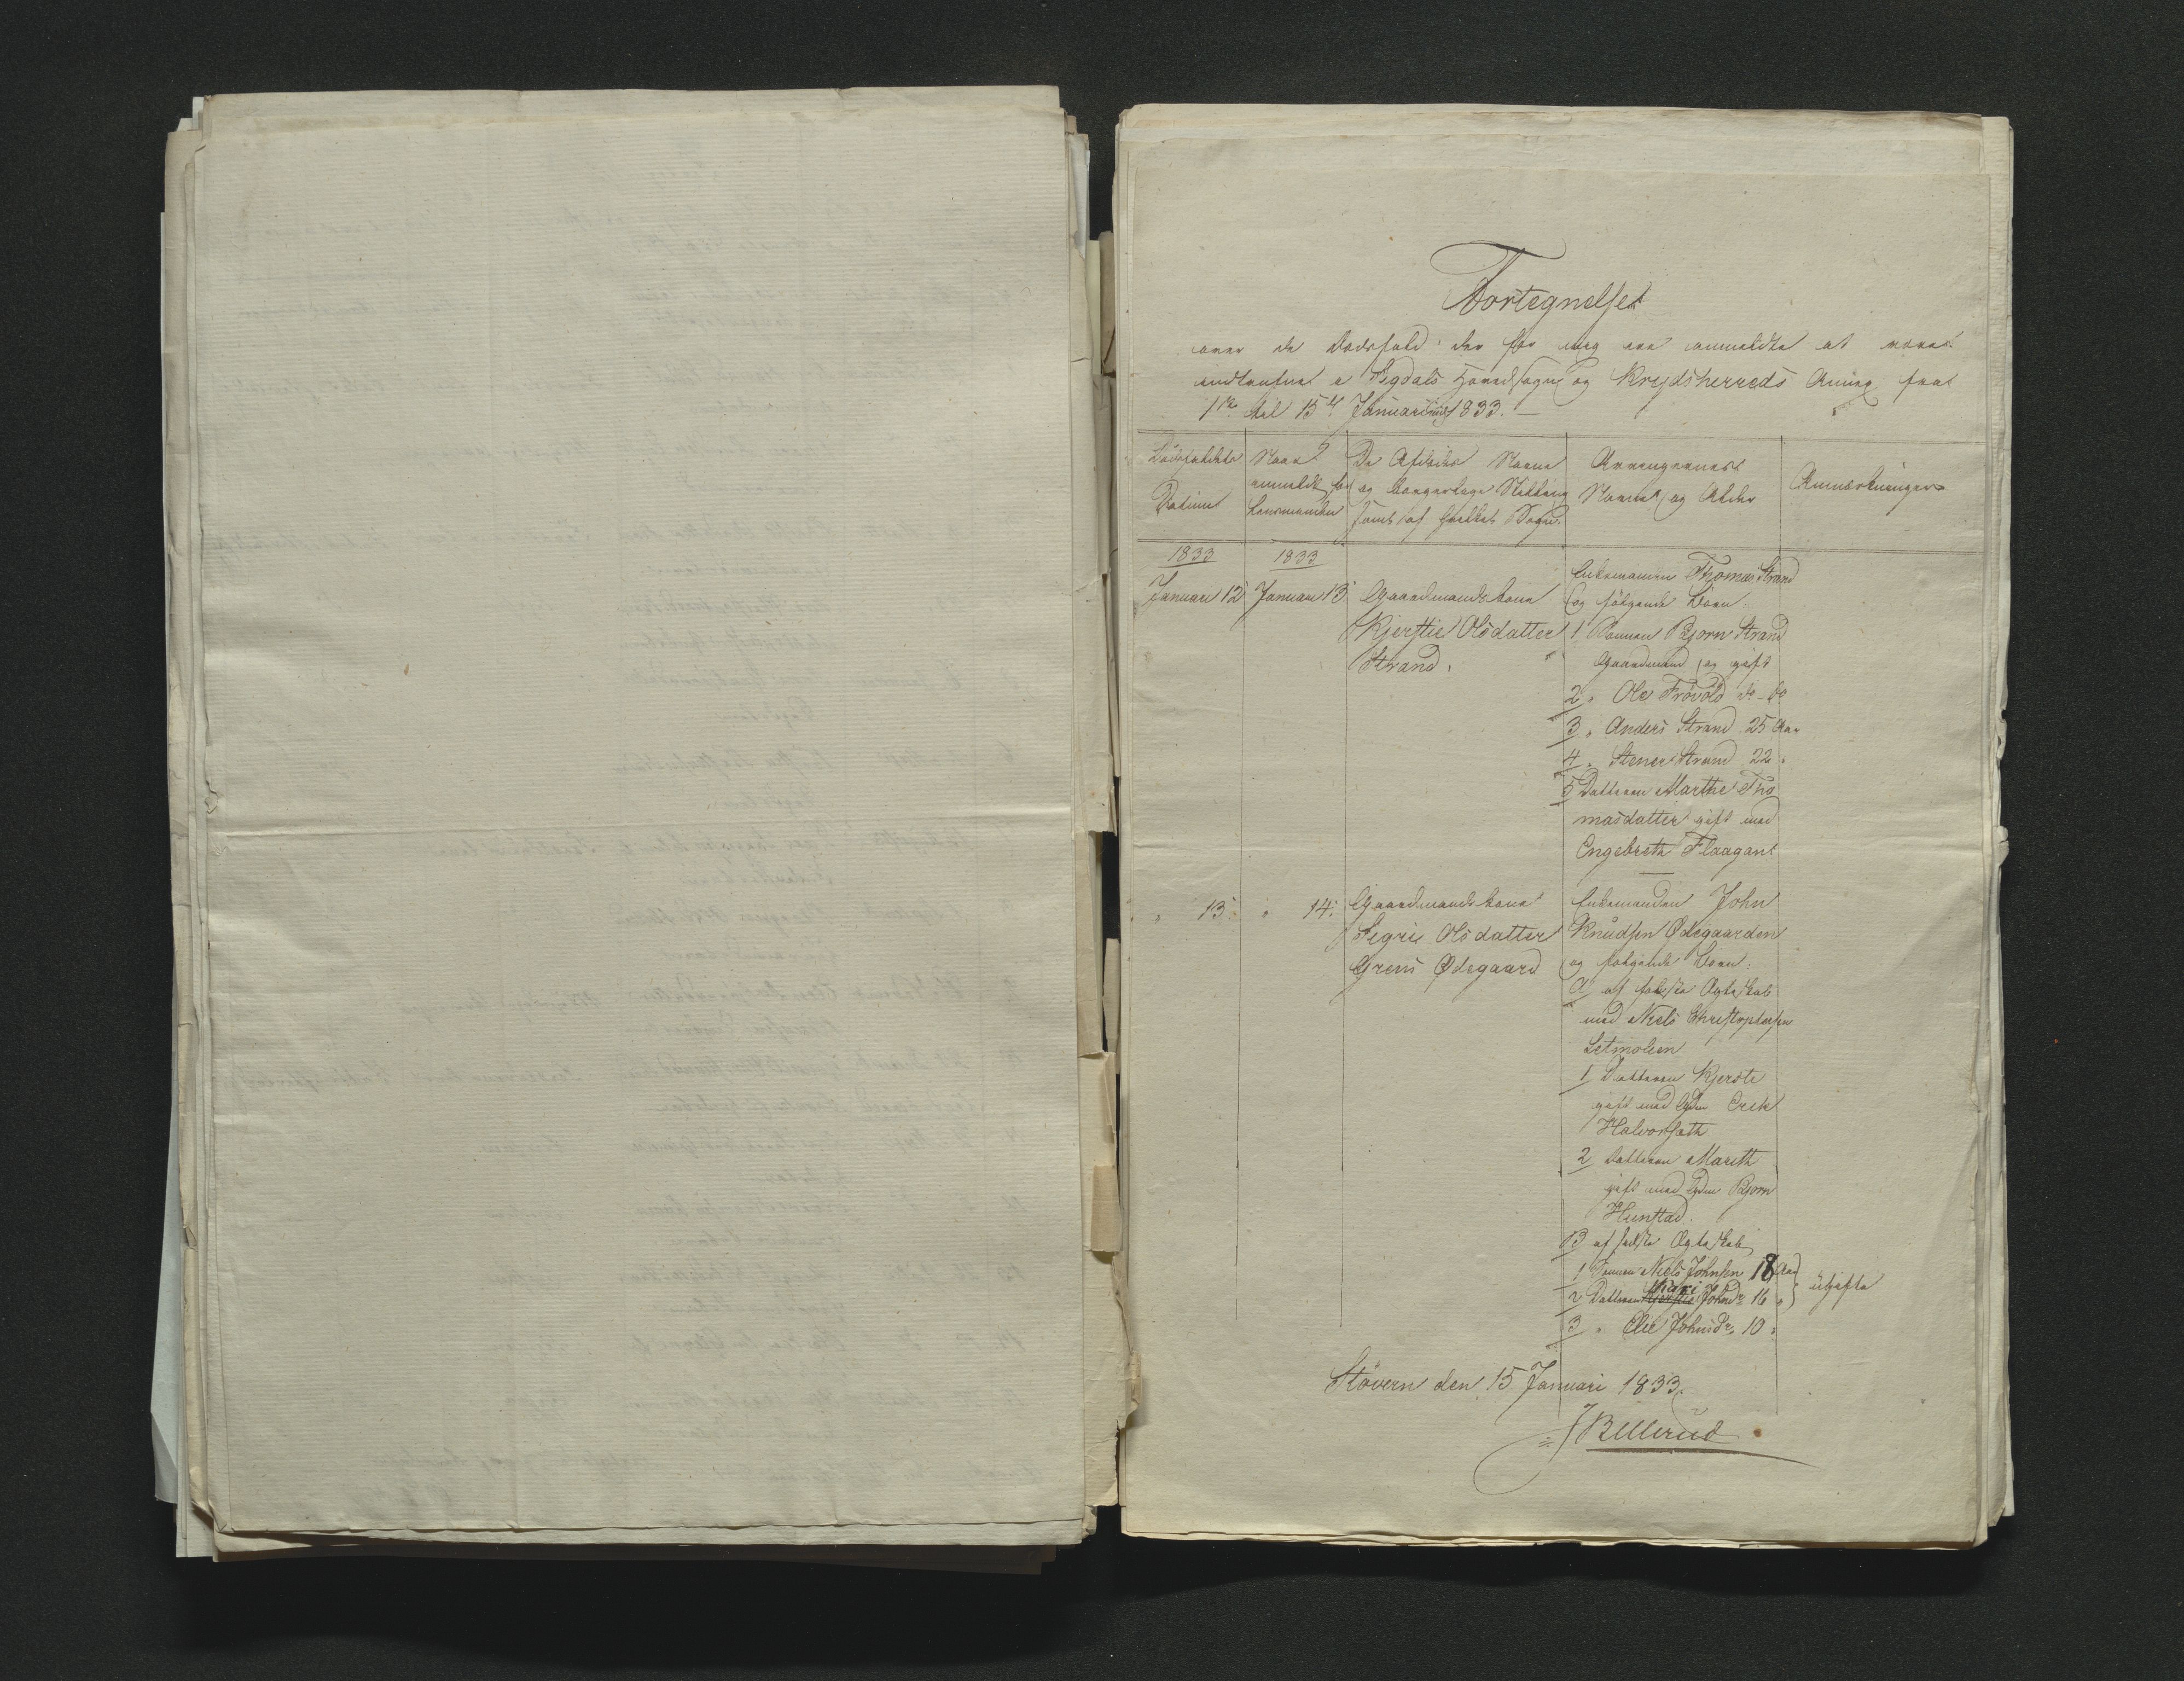 Fortegnelse
over de Dødsfald der for mig ere anmeldte at være
indtrufne i Sigdals Hovedsogn og Krydsherreds Annex fra
1te til 15de Januari 1833. —
Dødsfaldets
Datum
Naar
anmeldt for
Lensmanden
De Afdødes Navne
og borgerlige Stilling
samt af hvilket Sogn.
Arvingernes
Navne og Alder
Anmærkninger
1833
1833
Januari 12
Januari 13
Gaardmandskone
Kjerstie Olsdatter
Strand.
Enkemanden Thomas Strand
og følgende Børn:
1 Sønnen Bjørn Strand
Gaardmand og gift
2 " Ole Frövold do - do
3 " Anders Strand 25 Aar
4 " Stener Strand 22 "
5 Datteren Marthe Tho
masdatter gift med
Engebreth Flaagan
" 13
" 14
Gaardmandskone
Sigri Olsdatter
Grens Ødegaard
Enkemanden John
Knudsen Ødegaarden
og følgende Børn:
A af første Ægteskab
med Niels Christophersen
1 Datteren Kjersti
gift med Erik
Halvorseth
2 Datteren Marith
gift med Bjørn
Hunstad.
B af sidste Ægteskab
1 Sønnen Niels Johnsen 18 Aar
2 Datteren Kjerstie Kari Johnsdr 16 "
ugifte
3 " Elie Johnsdr 10 "
Støvern den 15 Januari 1833.
J Bellerud